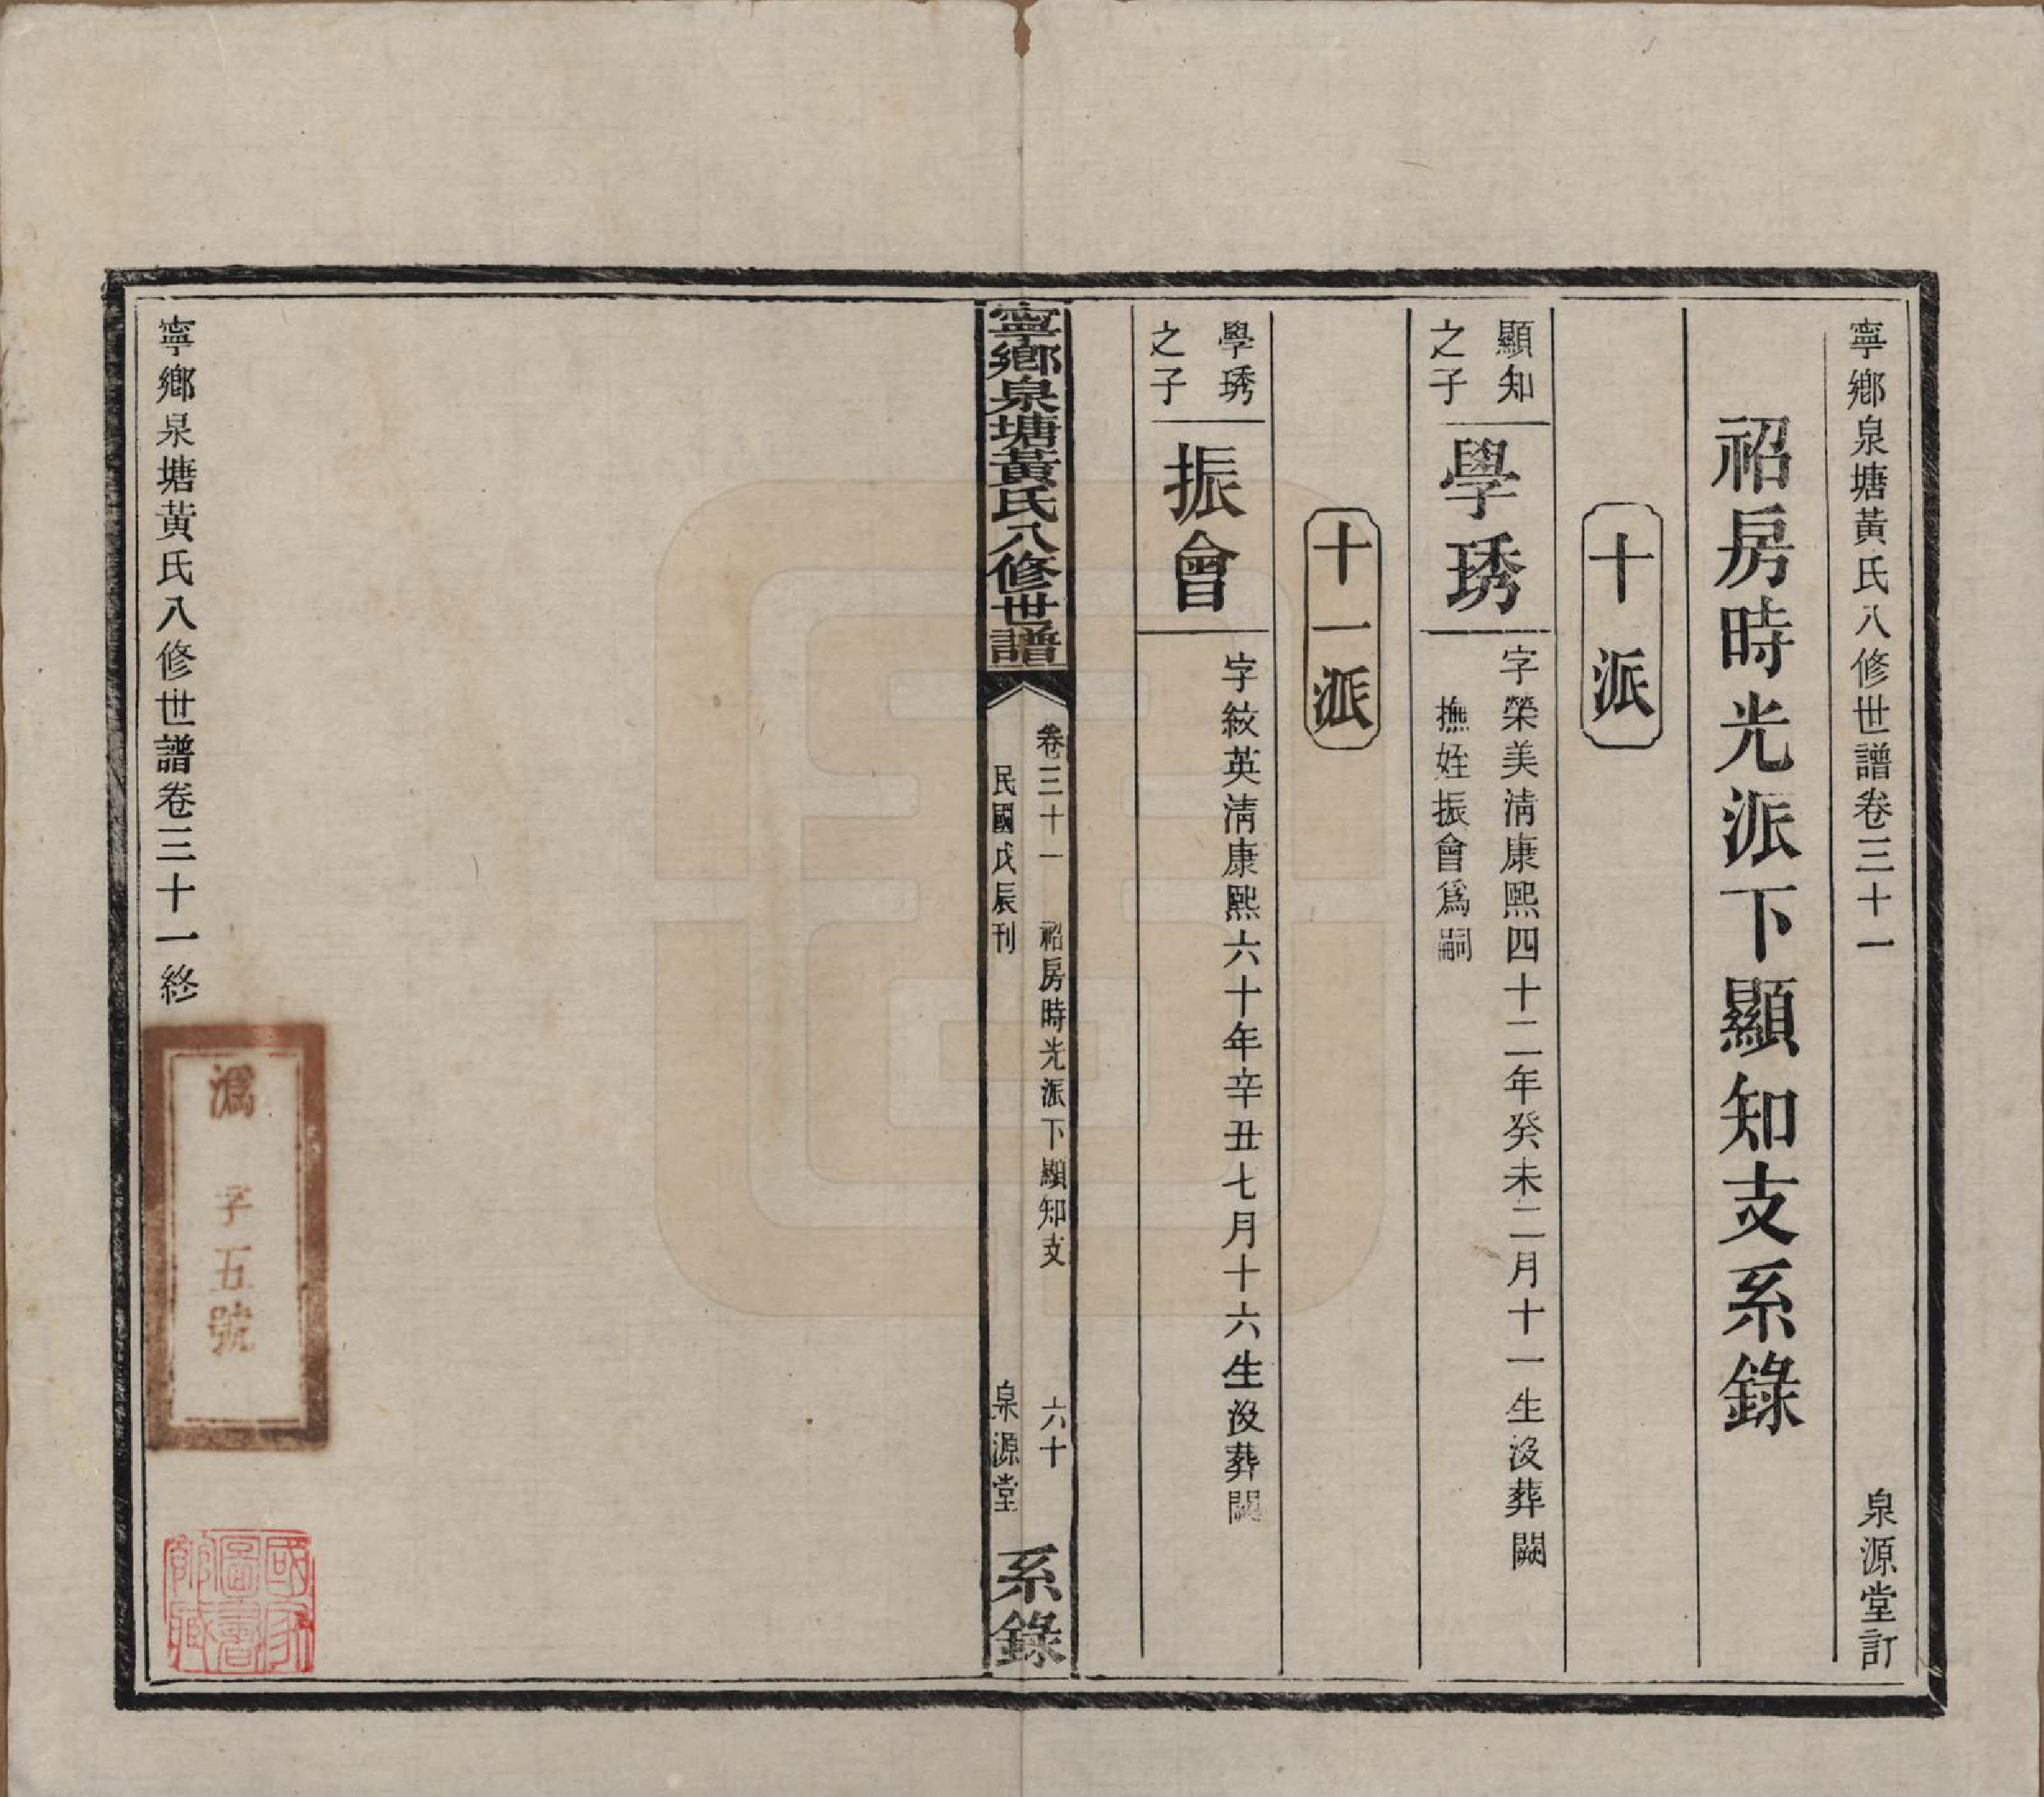 寧鄉泉塘黃氏八修世譜卷三十一
泉源堂訂
祒房時光派下顯知支系錄
十派
顯知
之子
學琇
字榮美淸康熙四十二年癸未二月十一生沒葬闕
撫姪振會爲嗣
十一派
學琇
之子
振會
字紋英淸康熙六十年辛丑七月十六生沒葬闕
寧鄉泉塘黃氏八修世譜
卷三十一
祒房時光派下顯知支
六十
民國戊辰刊
泉源堂
系錄
寧鄉泉塘黃氏八修世譜卷三十一終
潙字五號
國家
圖書
館藏